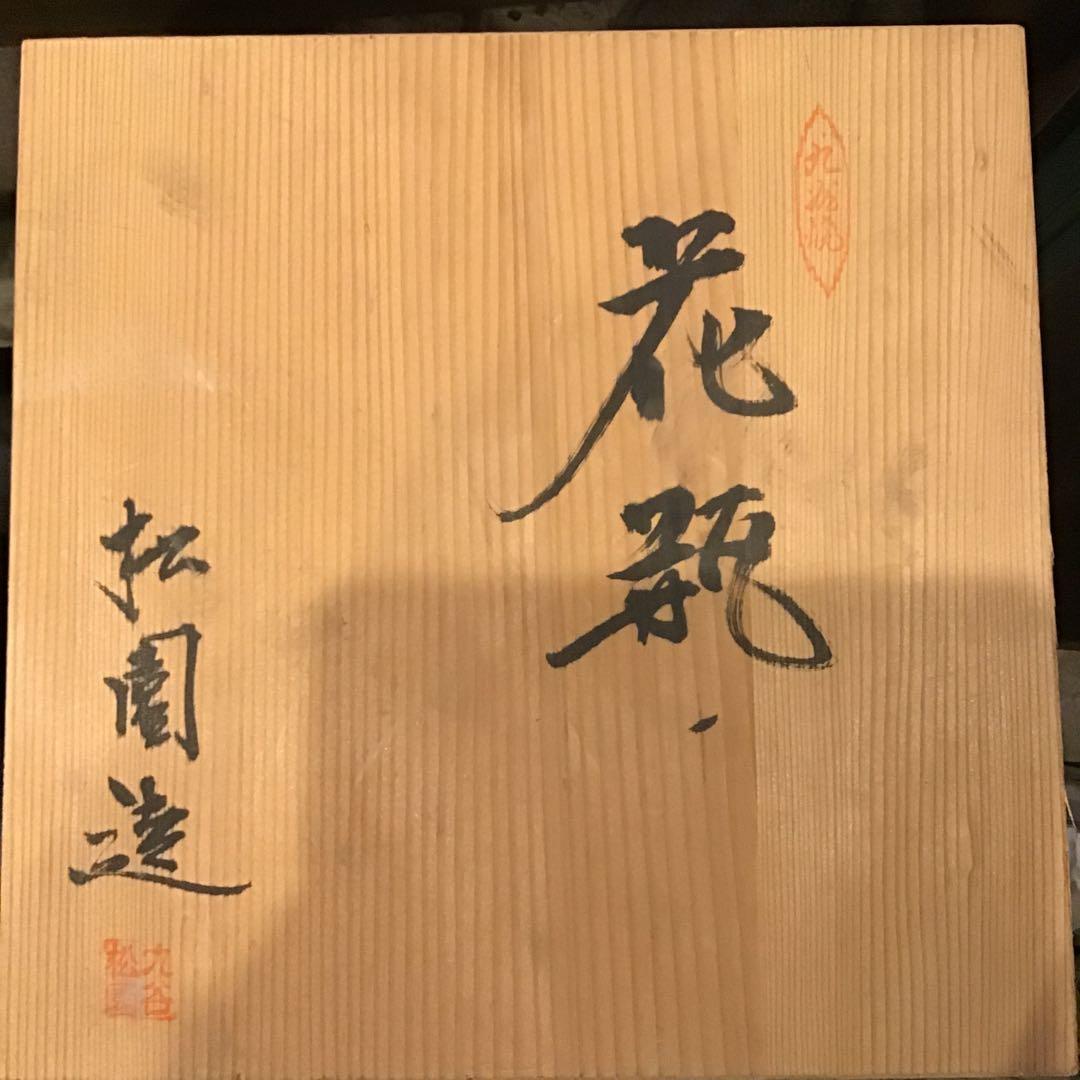 九谷焼
花瓶
松園造
九谷
松園